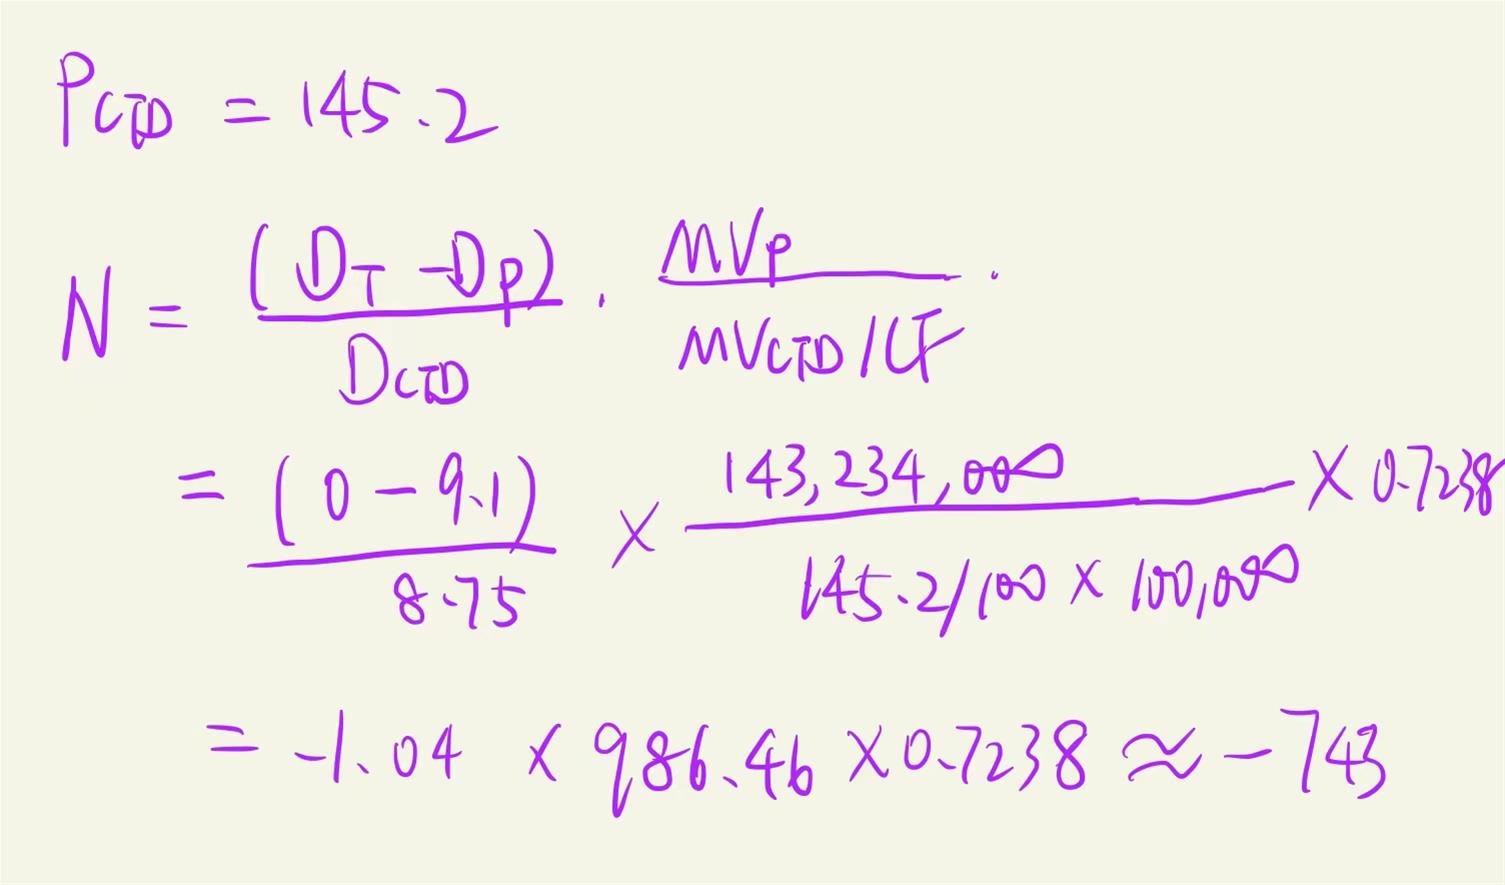 P_CTD = 145.2
N = (D_T - D_P) / D_CTD · MV_P / (MV_CTD / CF) ·
= (0 - 9.1) / 8.75 × 143,234,000 / (145.2/100 × 100,000) × 0.7238
= -1.04 × 986.46 × 0.7238 ≈ -743